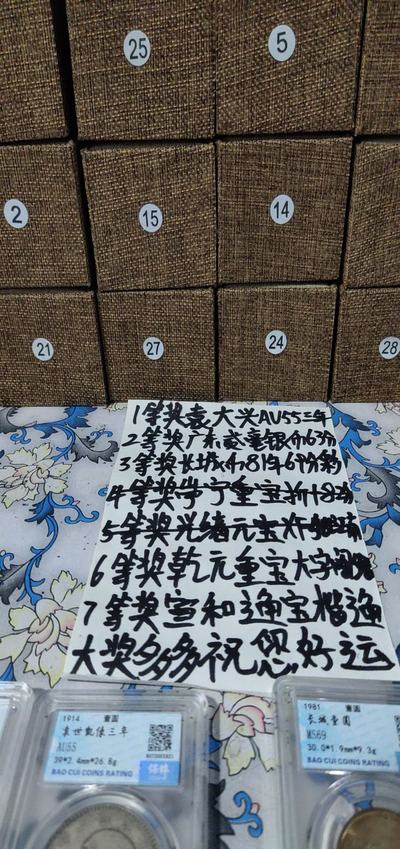 25
5
2
15
14
21
27
24
28
1等奖袁大头AU55三年
2等奖广东贰毫银币63分
3等奖长城币81年69分
4等奖崇宁重宝折十82
5等奖光绪元宝
6等奖乾元重宝大字
7等奖宣和通宝楷通
大奖多多祝您好运
1914 壹圆
袁世凯像三年
AU55
39*2.4mm*26.8g
BAO CUI COINS RATING
1981 壹圆
长城壹圆
MS69
30.0*1.9mm*9.3g
BAO CUI COINS RATING